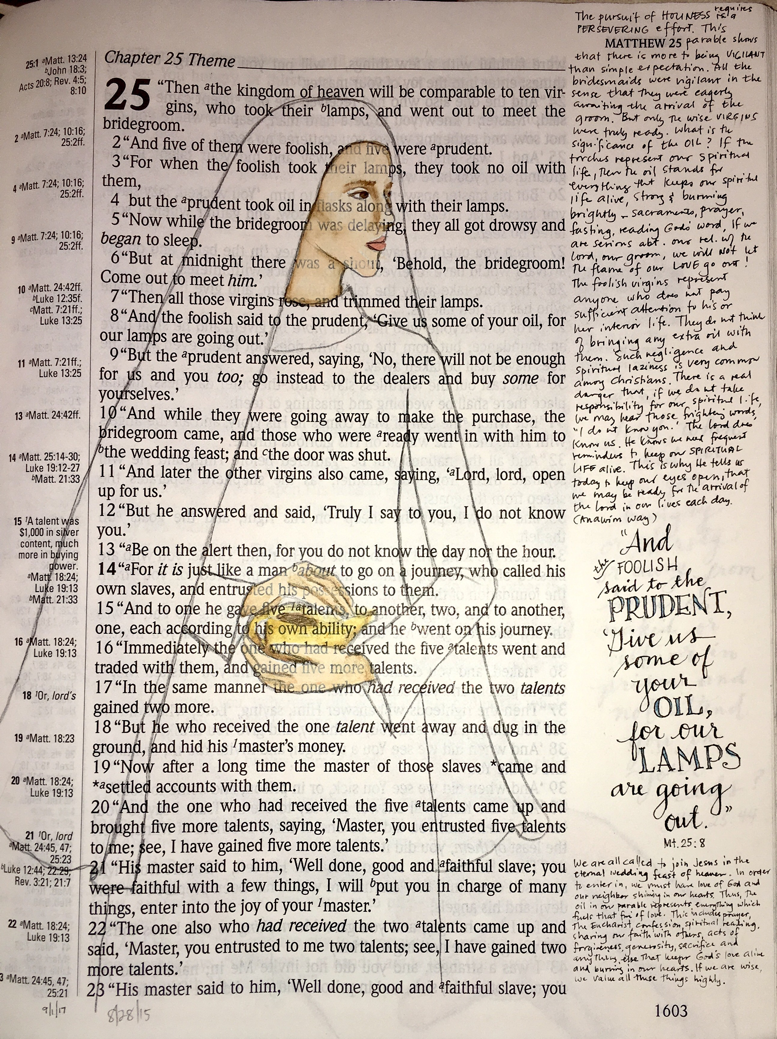 Chapter 25 Theme
25 "Then ᵃthe kingdom of heaven will be comparable to ten vir-
gins, who took their ᵇlamps, and went out to meet the
bridegroom.
2 "And five of them were foolish, and five were ᵃprudent.
3 "For when the foolish took their lamps, they took no oil with
them,
4 but the ᵃprudent took oil in flasks along with their lamps.
5 "Now while the bridegroom was delaying, they all got drowsy and
began to sleep.
6 "But at midnight there was a shout, 'Behold, the bridegroom!
Come out to meet him.'
7 "Then all those virgins rose, and trimmed their lamps.
8 "And the foolish said to the prudent, 'Give us some of your oil, for
our lamps are going out.'
9 "But the ᵃprudent answered, saying, 'No, there will not be enough
for us and you too; go instead to the dealers and buy some for
yourselves.'
10 "And while they were going away to make the purchase, the
bridegroom came, and those who were ᵃready went in with him to
ᵇthe wedding feast; and ᶜthe door was shut.
11 "And later the other virgins also came, saying, 'ᵃLord, lord, open
up for us.'
12 "But he answered and said, 'Truly I say to you, I do not know
you.'
13 "ᵃBe on the alert then, for you do not know the day nor the hour.
14 "ᵃFor it is just like a man ᵇabout to go on a journey, who called his
own slaves, and entrusted his possessions to them.
15 "And to one he gave five ¹ᵃtalents, to another, two, and to another,
one, each according to his own ability; and he ᵇwent on his journey.
16 "Immediately the one who had received the five ᵃtalents went and
traded with them, and gained five more talents.
17 "In the same manner the one who had received the two talents
gained two more.
18 "But he who received the one talent went away and dug in the
ground, and hid his ¹master's money.
19 "Now after a long time the master of those slaves *came and
*ᵃsettled accounts with them.
20 "And the one who had received the five ᵃtalents came up and
brought five more talents, saying, 'Master, you entrusted five talents
to me; see, I have gained five more talents.'
21 "His master said to him, 'Well done, good and ᵃfaithful slave; you
were faithful with a few things, I will ᵇput you in charge of many
things, enter into the joy of your ¹master.'
22 "The one also who had received the two ᵃtalents came up and
said, 'Master, you entrusted to me two talents; see, I have gained two
more talents.'
23 "His master said to him, 'Well done, good and ᵃfaithful slave; you
25:1 ᵃMatt. 13:24
ᵇJohn 18:3;
Acts 20:8; Rev. 4:5;
8:10
2 ᵃMatt. 7:24; 10:16;
25:2ff.
4 ᵃMatt. 7:24; 10:16;
25:2ff.
9 ᵃMatt. 7:24; 10:16;
25:2ff.
10 ᵃMatt. 24:42ff.
ᵇLuke 12:35f.
ᶜMatt. 7:21ff.;
Luke 13:25
11 ᵃMatt. 7:21ff.;
Luke 13:25
13 ᵃMatt. 24:42ff.
14 ᵃMatt. 25:14-30;
Luke 19:12-27
ᵇMatt. 21:33
15 ¹A talent was
$1,000 in silver
content, much
more in buying
power.
ᵃMatt. 18:24;
Luke 19:13
ᵇMatt. 21:33
16 ᵃMatt. 18:24;
Luke 19:13
18 ¹Or, lord's
19 ᵃMatt. 18:23
20 ᵃMatt. 18:24;
Luke 19:13
21 ¹Or, lord
ᵃMatt. 24:45, 47;
25:23
ᵇLuke 12:44; 22:29;
Rev. 3:21; 21:7
22 ᵃMatt. 18:24;
Luke 19:13
3 ᵃMatt. 24:45, 47;
25:21
9/1/17
8/28/15
The pursuit of HOLINESS requires a
PERSEVERING effort. This
MATTHEW 25 parable shows
that there is more to being VIGILANT
than simple expectation. All the
bridesmaids were vigilant in the
sense that they were eagerly
awaiting the arrival of the
groom. But only the wise VIRGINS
were truly ready. What is the
significance of the OIL? If the
torches represent our spiritual
life, then the oil stands for
everything that keeps our spiritual
life alive, strong & burning
brightly - sacraments, prayer,
fasting, reading God's word. If we
are serious abt. our rel. w/ the
Lord, our groom, we will not let
the flame of our LOVE go out!
The foolish virgins represent
anyone who does not pay
sufficient attention to his or
her interior life. They do not think
of bringing any extra oil with
them. Such negligence and
spiritual laziness is very common
among Christians. There is a real
danger that, if we do not take
responsibility for our spiritual life,
we may hear those frightening words,
"I do not know you." The Lord does
know us. He knows we need frequent
reminders to keep our SPIRITUAL
LIFE alive. This is why He tells us
today to keep our eyes open, that
we may be ready for the arrival of
the Lord in our lives each day.
(Anawim way)
"And
the FOOLISH
said to the
PRUDENT,
'Give us
some of
your
OIL,
for our
LAMPS
are going
out."
Mt. 25:8
We are all called to join Jesus in the
eternal wedding feast of heaven. In order
to enter in, we must have love of God and
our neighbor shining in our hearts. Thus, the
oil in our parable represents everything which
fuels that fire of love. This includes prayer,
the Eucharist, confession, spiritual reading,
sharing our faith with others, acts of
forgiveness, generosity, sacrifice and
anything else that keeps God's love alive
and burning in our hearts. If we are wise,
we value all these things highly.
1603